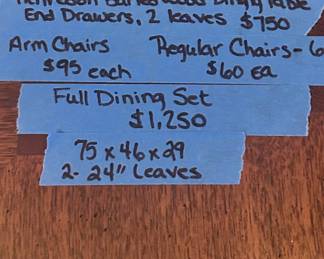 Dining Table
End Drawers, 2 leaves $750
Arm Chairs Regular Chairs- 6
$95 each $60 Ea
Full Dining Set
$1,250
75 x 46 x 29
2- 24" Leaves